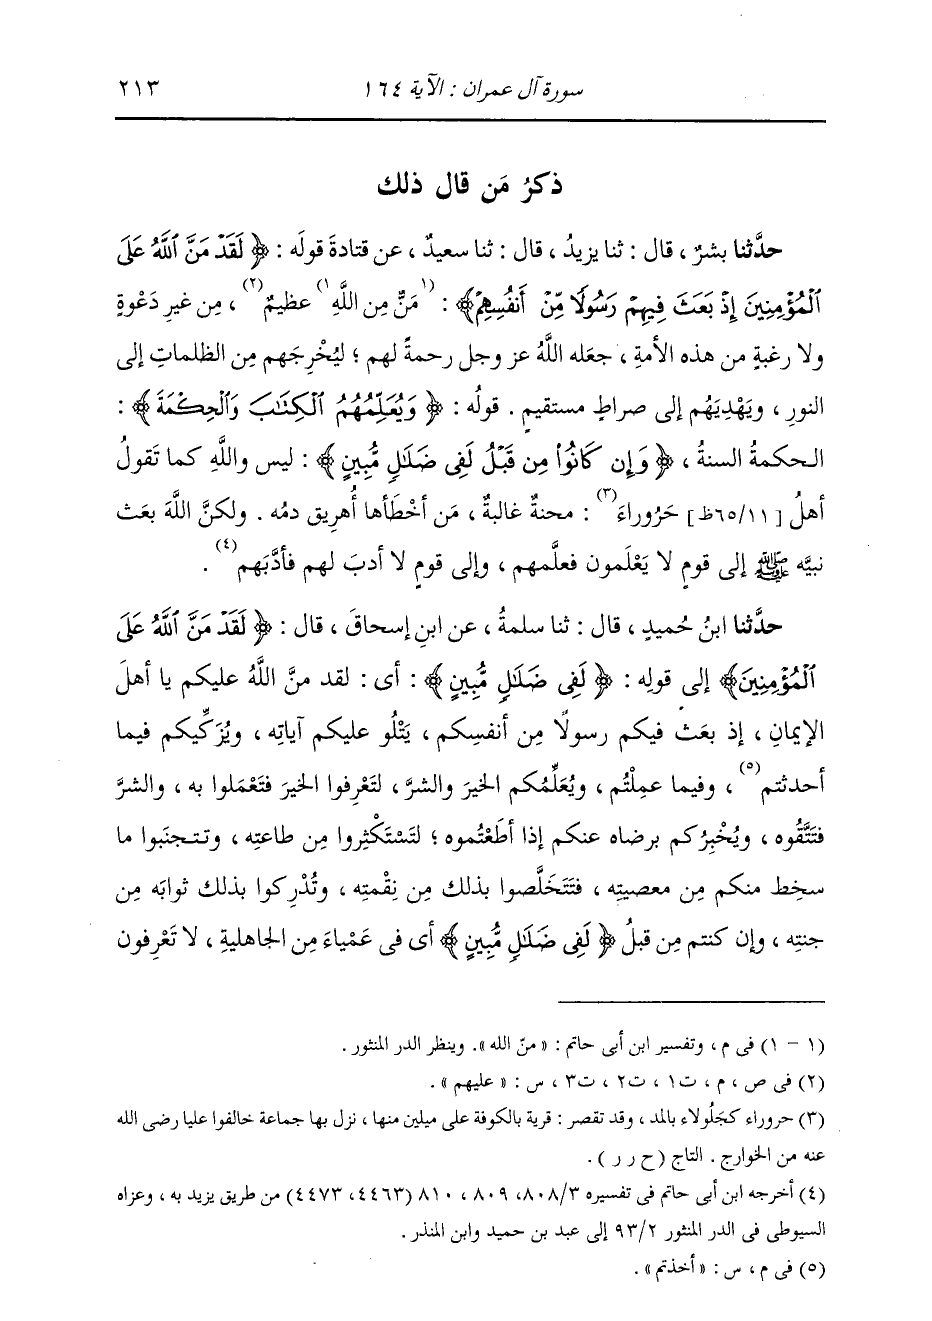 سورة آل عمران : الآية ١٦٤ ٢١٣
ذكرُ مَن قال ذلك
حدَّثنا بشرٌ ، قال : ثنا يزيدُ ، قال : ثنا سعيدٌ ، عن قتادةَ قولَه : ﴿ لَقَدْ مَنَّ ٱللَّهُ عَلَى
ٱلْمُؤْمِنِينَ إِذْ بَعَثَ فِيهِمْ رَسُولًا مِّنْ أَنفُسِهِمْ ﴾ : (١مَنٌّ مِن اللَّهِ١) عظيمٌ(٢) ، مِن غيرِ دَعْوةٍ
ولا رغبةٍ من هذه الأمةِ ، جعَله اللَّهُ عز وجل رحمةً لهم ؛ ليُخْرِجَهم مِن الظلماتِ إلى
النورِ ، ويَهْدِيَهُم إلى صراطٍ مستقيمٍ . قولُه : ﴿ وَيُعَلِّمُهُمُ ٱلْكِتَٰبَ وَٱلْحِكْمَةَ ﴾ :
الحكمةُ السنةُ ، ﴿ وَإِن كَانُوا۟ مِن قَبْلُ لَفِى ضَلَٰلٍ مُّبِينٍ ﴾ : ليس واللَّهِ كما تَقولُ
أهلُ [ ١١/ ٦٥ظ] حَرُوراءَ(٣) : محنةٌ غالبةٌ ، مَن أخْطَأها أُهريق دمُه . ولكنَّ اللَّهَ بعَث
نبيَّه ﷺ إلى قومٍ لا يَعْلَمون فعلَّمهم ، وإلى قومٍ لا أدبَ لهم فأدَّبَهم(٤) .
حدَّثنا ابنُ حُميدٍ ، قال : ثنا سلمةُ ، عن ابنِ إسحاقَ ، قال : ﴿ لَقَدْ مَنَّ ٱللَّهُ عَلَى
ٱلْمُؤْمِنِينَ ﴾ إلى قولِه : ﴿ لَفِى ضَلَٰلٍ مُّبِينٍ ﴾ : أى : لقد منَّ اللَّهُ عليكم يا أهلَ
الإيمانِ ، إذ بعَث فيكم رسولًا مِن أنفسِكم ، يَتْلُو عليكم آياتِه ، ويُزَكِّيكم فيما
أحدثتم(٥) ، وفيما عمِلْتُم ، ويُعَلِّمُكم الخيرَ والشرَّ ، لتَعْرِفوا الخيرَ فتَعْمَلوا به ، والشرَّ
فتَتَّقُوه ، ويُخْبِرُكم برضاه عنكم إذا أطَعْتُموه ؛ لتَسْتَكْثِروا مِن طاعتِه ، وتتجنَبوا ما
سخِط منكم مِن معصيتِه ، فتَتَخَلَّصوا بذلك مِن نِقْمتِه ، وتُدْرِكوا بذلك ثوابَه مِن
جنتِه ، وإن كنتم مِن قبلُ ﴿ لَفِى ضَلَٰلٍ مُّبِينٍ ﴾ أى فى عَمْياءَ مِن الجاهليةِ ، لا تَعْرِفون
(١ - ١) فى م ، وتفسير ابن أبى حاتم : « منّ الله ». وينظر الدر المنثور .
(٢) فى ص ، م ، ت١ ، ت٢ ، ت٣ ، س : « عليهم » .
(٣) حروراء كجَلُولاء بالمد ، وقد تقصر : قرية بالكوفة على ميلين منها ، نزل بها جماعة خالفوا عليا رضى الله
عنه من الخوارج . التاج (ح ر ر ) .
(٤) أخرجه ابن أبى حاتم فى تفسيره ٨٠٨/٣، ٨٠٩ ، ٨١٠ (٤٤٦٣، ٤٤٧٣) من طريق يزيد به ، وعزاه
السيوطى فى الدر المنثور ٩٣/٢ إلى عبد بن حميد وابن المنذر .
(٥) فى م ، س : « أخذتم » .